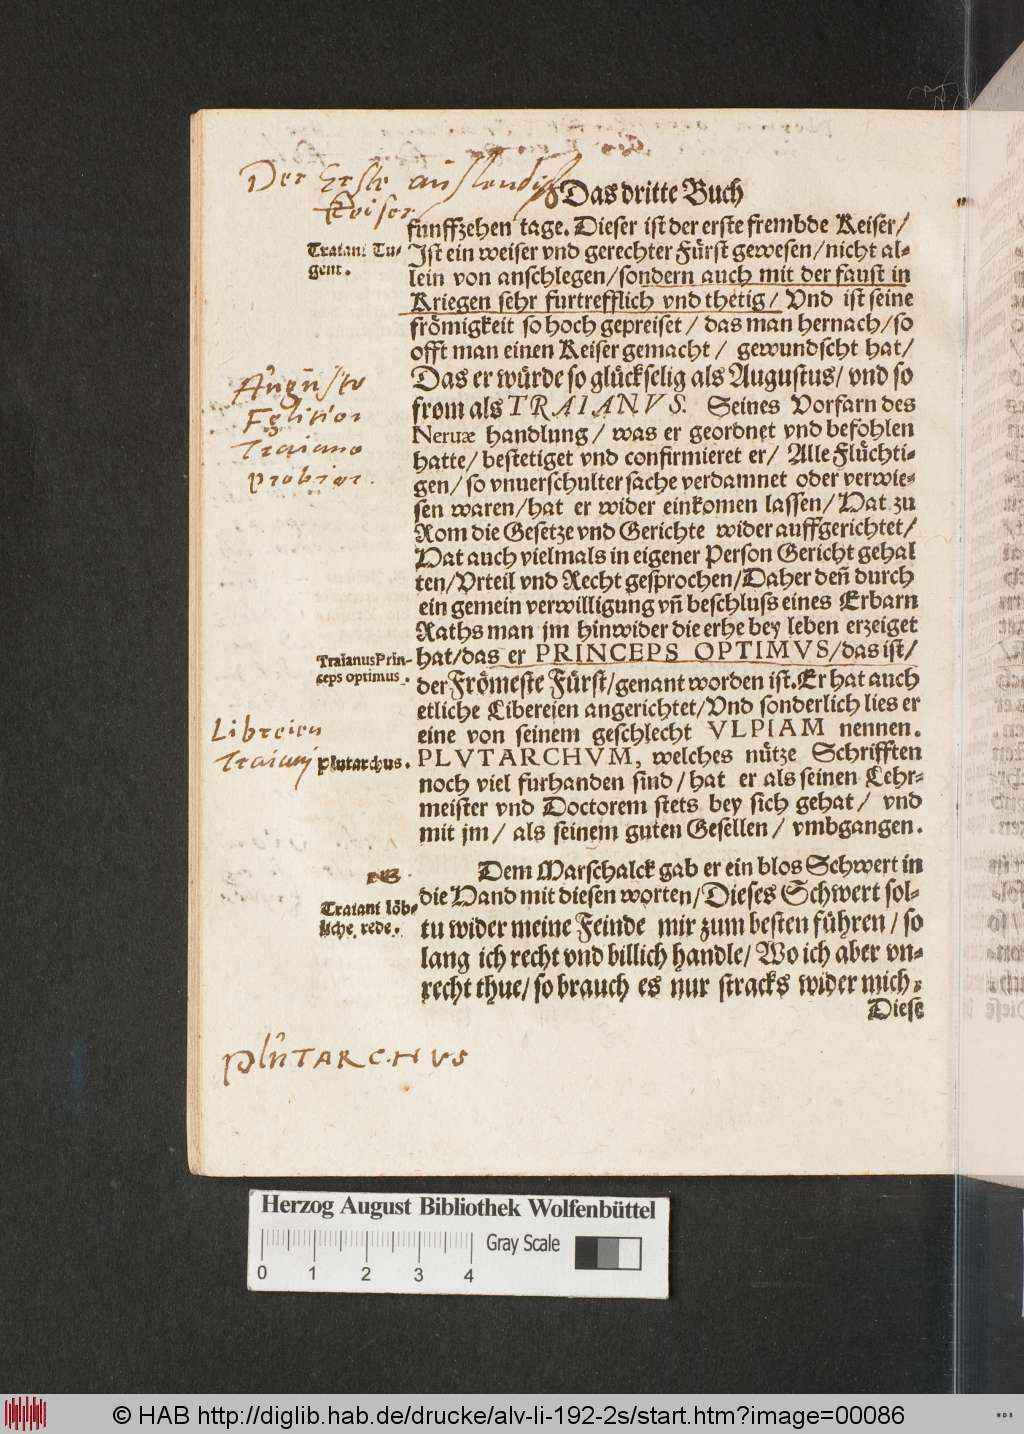 Der Erste auslendisch
Keiser
Das dritte Buch
funffzehen tage. Dieser ist der erste frembde Keiser/
Traiani Tu-
gent.
Ist ein weiser vnd gerechter Fürst gewesen/nicht al-
lein von anschlegen/sondern auch mit der faust in
Kriegen sehr furtrefflich vnd thetig/ Vnd ist seine
frömigkeit so hoch gepreiset/ das man hernach/so
offt man einen Keiser gemacht/ gewundscht hat/
Augusto
Felitior
Traiano
probior.
Das er würde so glückselig als Augustus/ vnd so
from als TRAIANVS. Seines Vorfarn des
Neruæ handlung/ was er geordnet vnd befohlen
hatte/ bestetiget vnd confirmieret er/ Alle Flüchti-
gen/ so vnuerschulter sache verdamnet oder verwie-
sen waren/hat er wider einkomen lassen/ Hat zu
Rom die Gesetze vnd Gerichte wider auffgerichtet/
Hat auch vielmals in eigener Person Gericht gehal
ten/Vrteil vnd Recht gesprochen/Daher deñ durch
ein gemein verwilligung vñ beschluss eines Erbarn
Raths man jm hinwider die erhe bey leben erzeiget
Traianus Prin-
ceps optimus.
hat/das er PRINCEPS OPTIMVS/das ist/
der Frömeste Fürst/genant worden ist.Er hat auch
etliche Libereien angerichtet/Vnd sonderlich lies er
Libreien
Traianj
eine von seinem geschlecht VLPIAM nennen.
Plutarchus.
PLVTARCHVM, welches nütze Schrifften
noch viel furhanden sind/hat er als seinen Lehr-
meister vnd Doctorem stets bey sich gehat/ vnd
mit jm/ als seinem guten Gesellen/ vmbgangen.
NB.
Dem Marschalck gab er ein blos Schwert in
Traiani löb-
liche rede.
die Hand mit diesen worten/Dieses Schwert sol-
tu wider meine Feinde mir zum besten führen/so
lang ich recht vnd billich handle/ Wo ich aber vn-
recht thue/so brauch es nur stracks wider mich.
Diese
PlûTARCHVS
Herzog August Bibliothek Wolfenbüttel
Gray Scale
0 1 2 3 4
© HAB http://diglib.hab.de/drucke/alv-li-192-2s/start.htm?image=00086